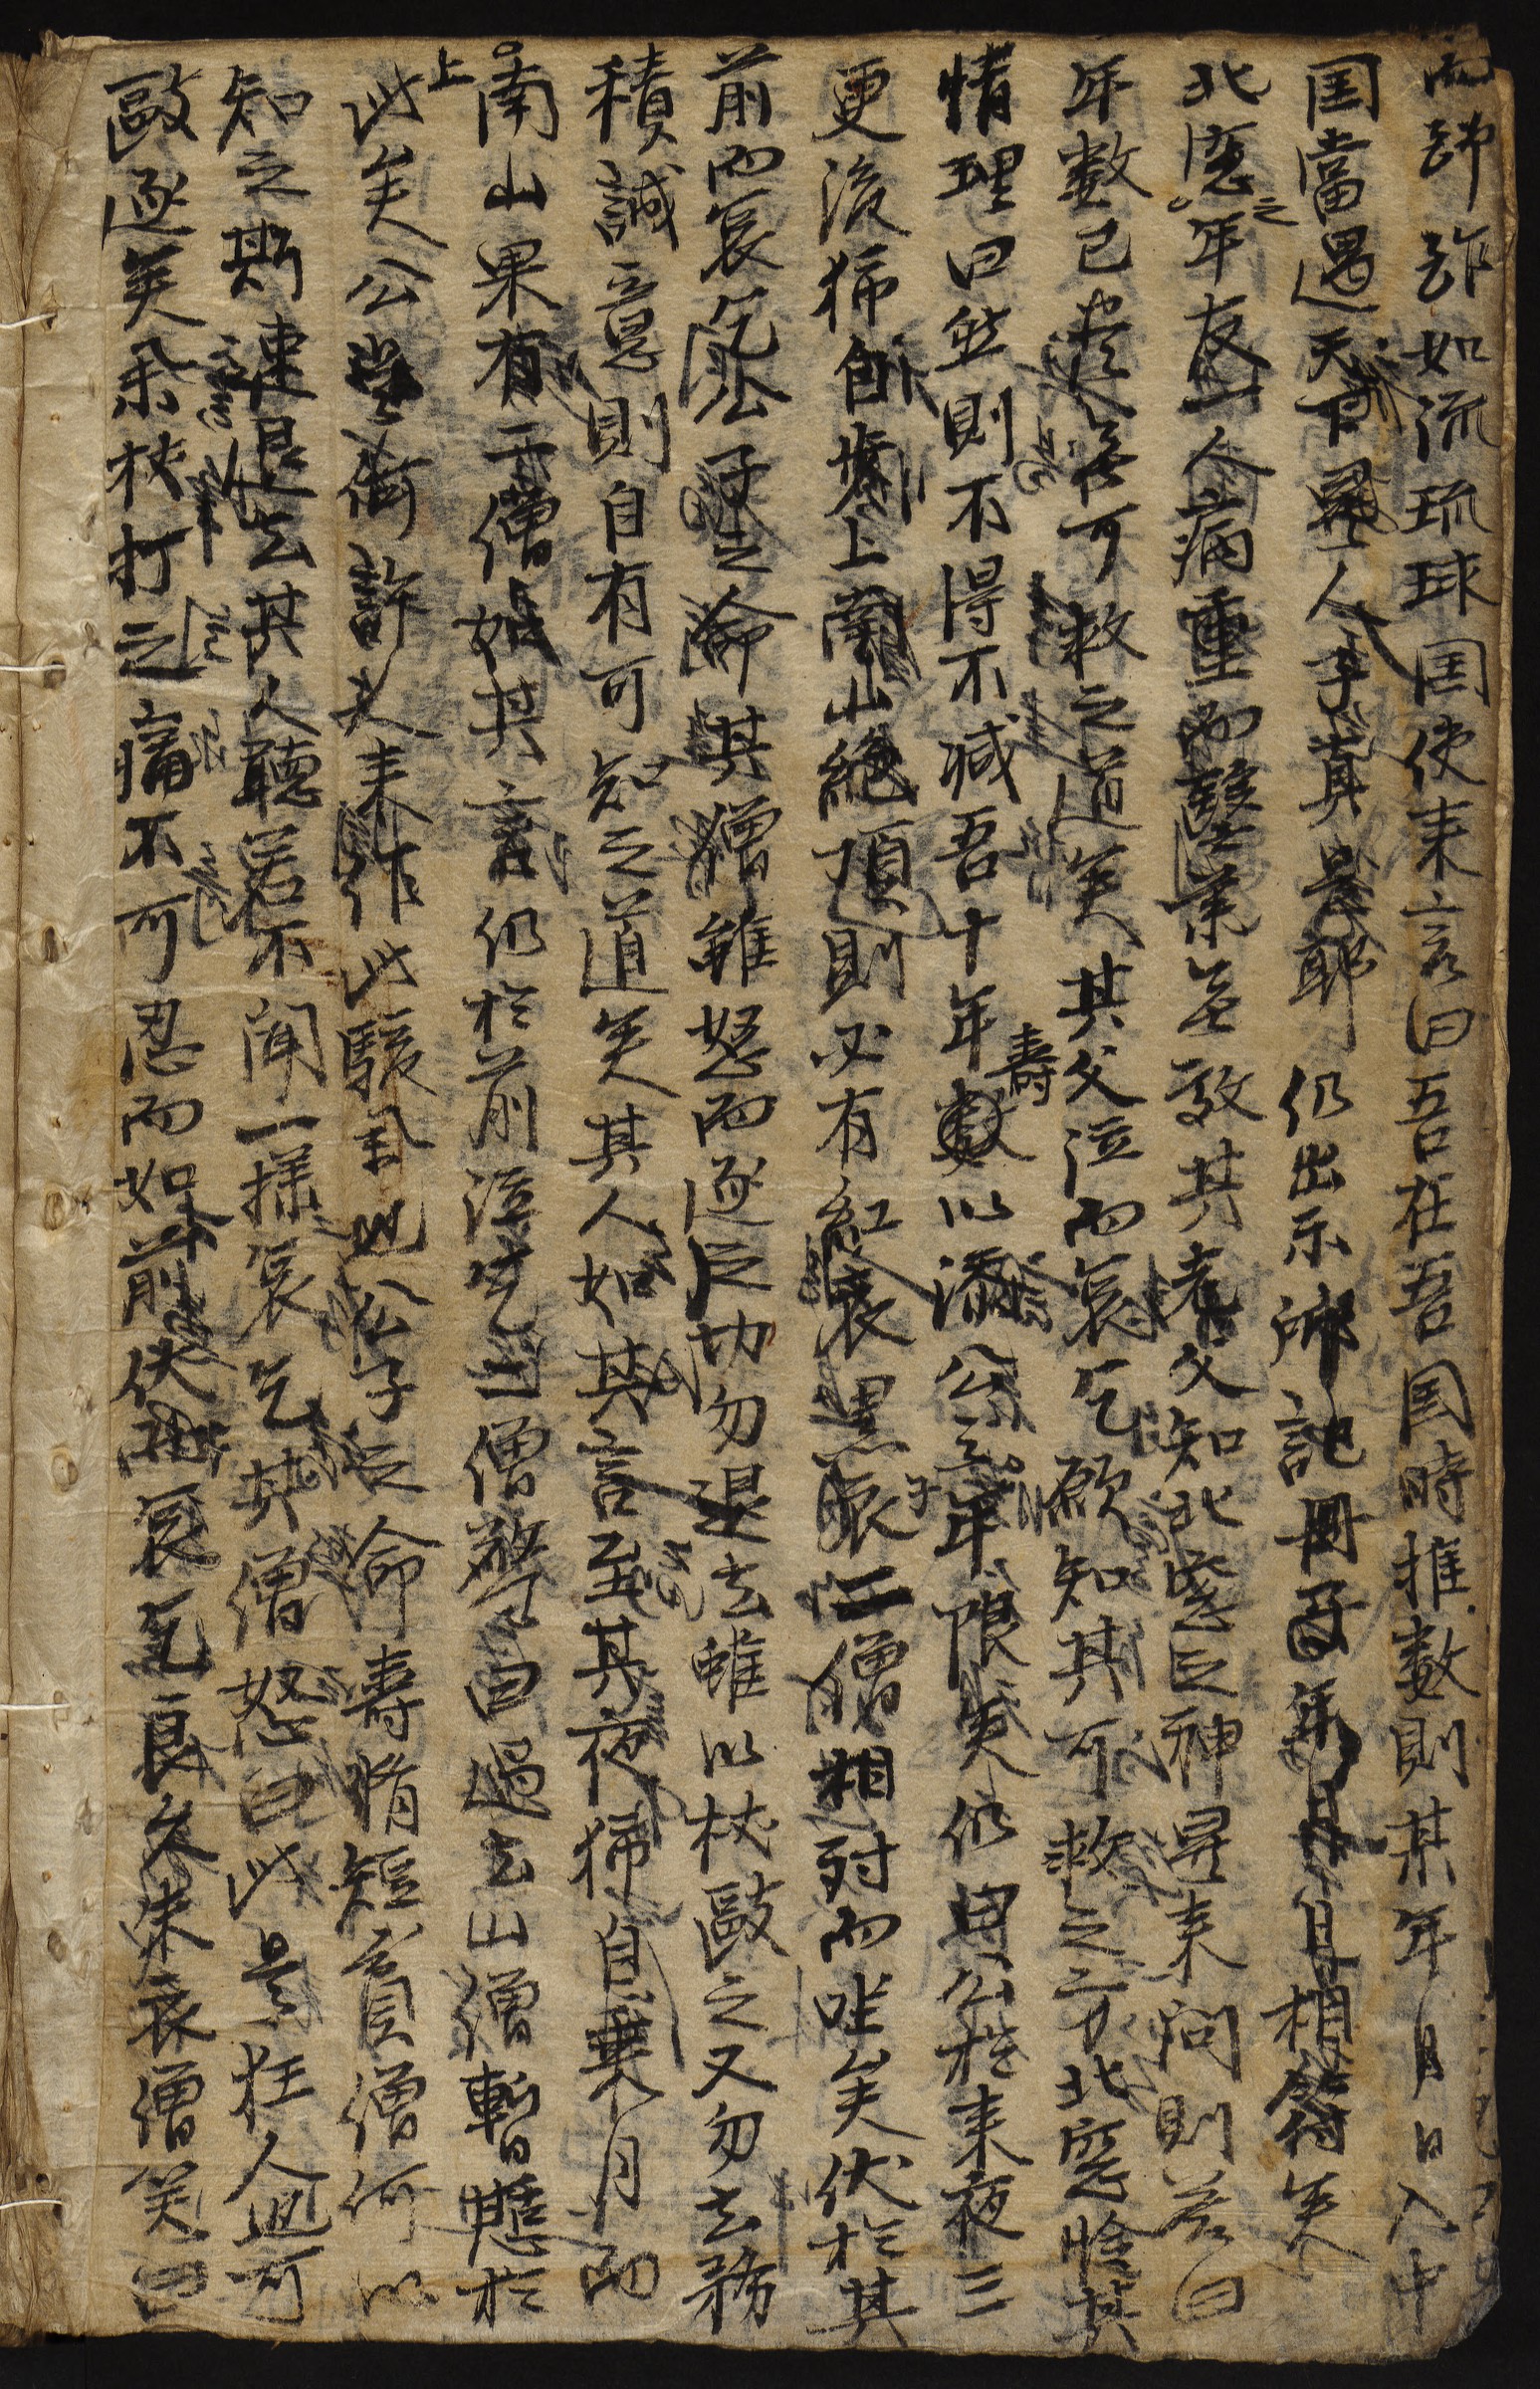 而辞說如流琉球国使来言曰吾在吾国時推数則某年月日入中
国當遇天下異人子真是耶仍出示所記冊子年月日相符矣
北窓之年友一人病重而醫藥無效其老父知北窓之神異来問則答曰
年数已盡無可救之道矣其父泣而哀乞願知其可救之方北窓怜其
情理曰然則不得不减吾十年壽以添公子年限矣仍曰公於来夜三
更後独自步上南山絶頂則必有紅衣黒衣二僧相對而坐矣伏於其
前而哀乞公子之命其僧雖怒而逐之切勿退去雖以杖敺之又勿去務
積誠意則自有可知之道矣其人如其言至其夜独自乘月而
上南山果有二僧如其言仍於前泣乞二僧驚曰過去山僧暫憩於
此矣公何許人来作此駭擧也公子之命壽脩短貧僧何以
知之斯速退去其人聽若不聞一樣哀乞其僧怒曰此是狂人也可
敺逐矣仍杖打之痛不可忍而如前伏而哀乞良久朱衣僧笑曰